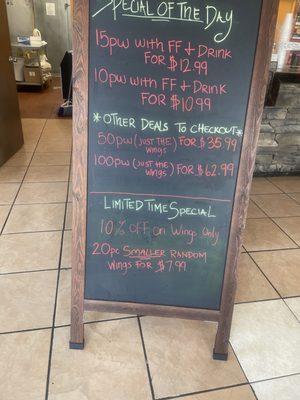 Special of the Day
15pw with FF + Drink
for $12.99
10pw with FF + Drink
for $10.99
*Other Deals to Checkout*
50pw (just the wings) for $35.99
100pw (just the wings) for $62.99
Limited Time Special
10% off on Wings Only
20pc Smaller Random
wings for $7.99